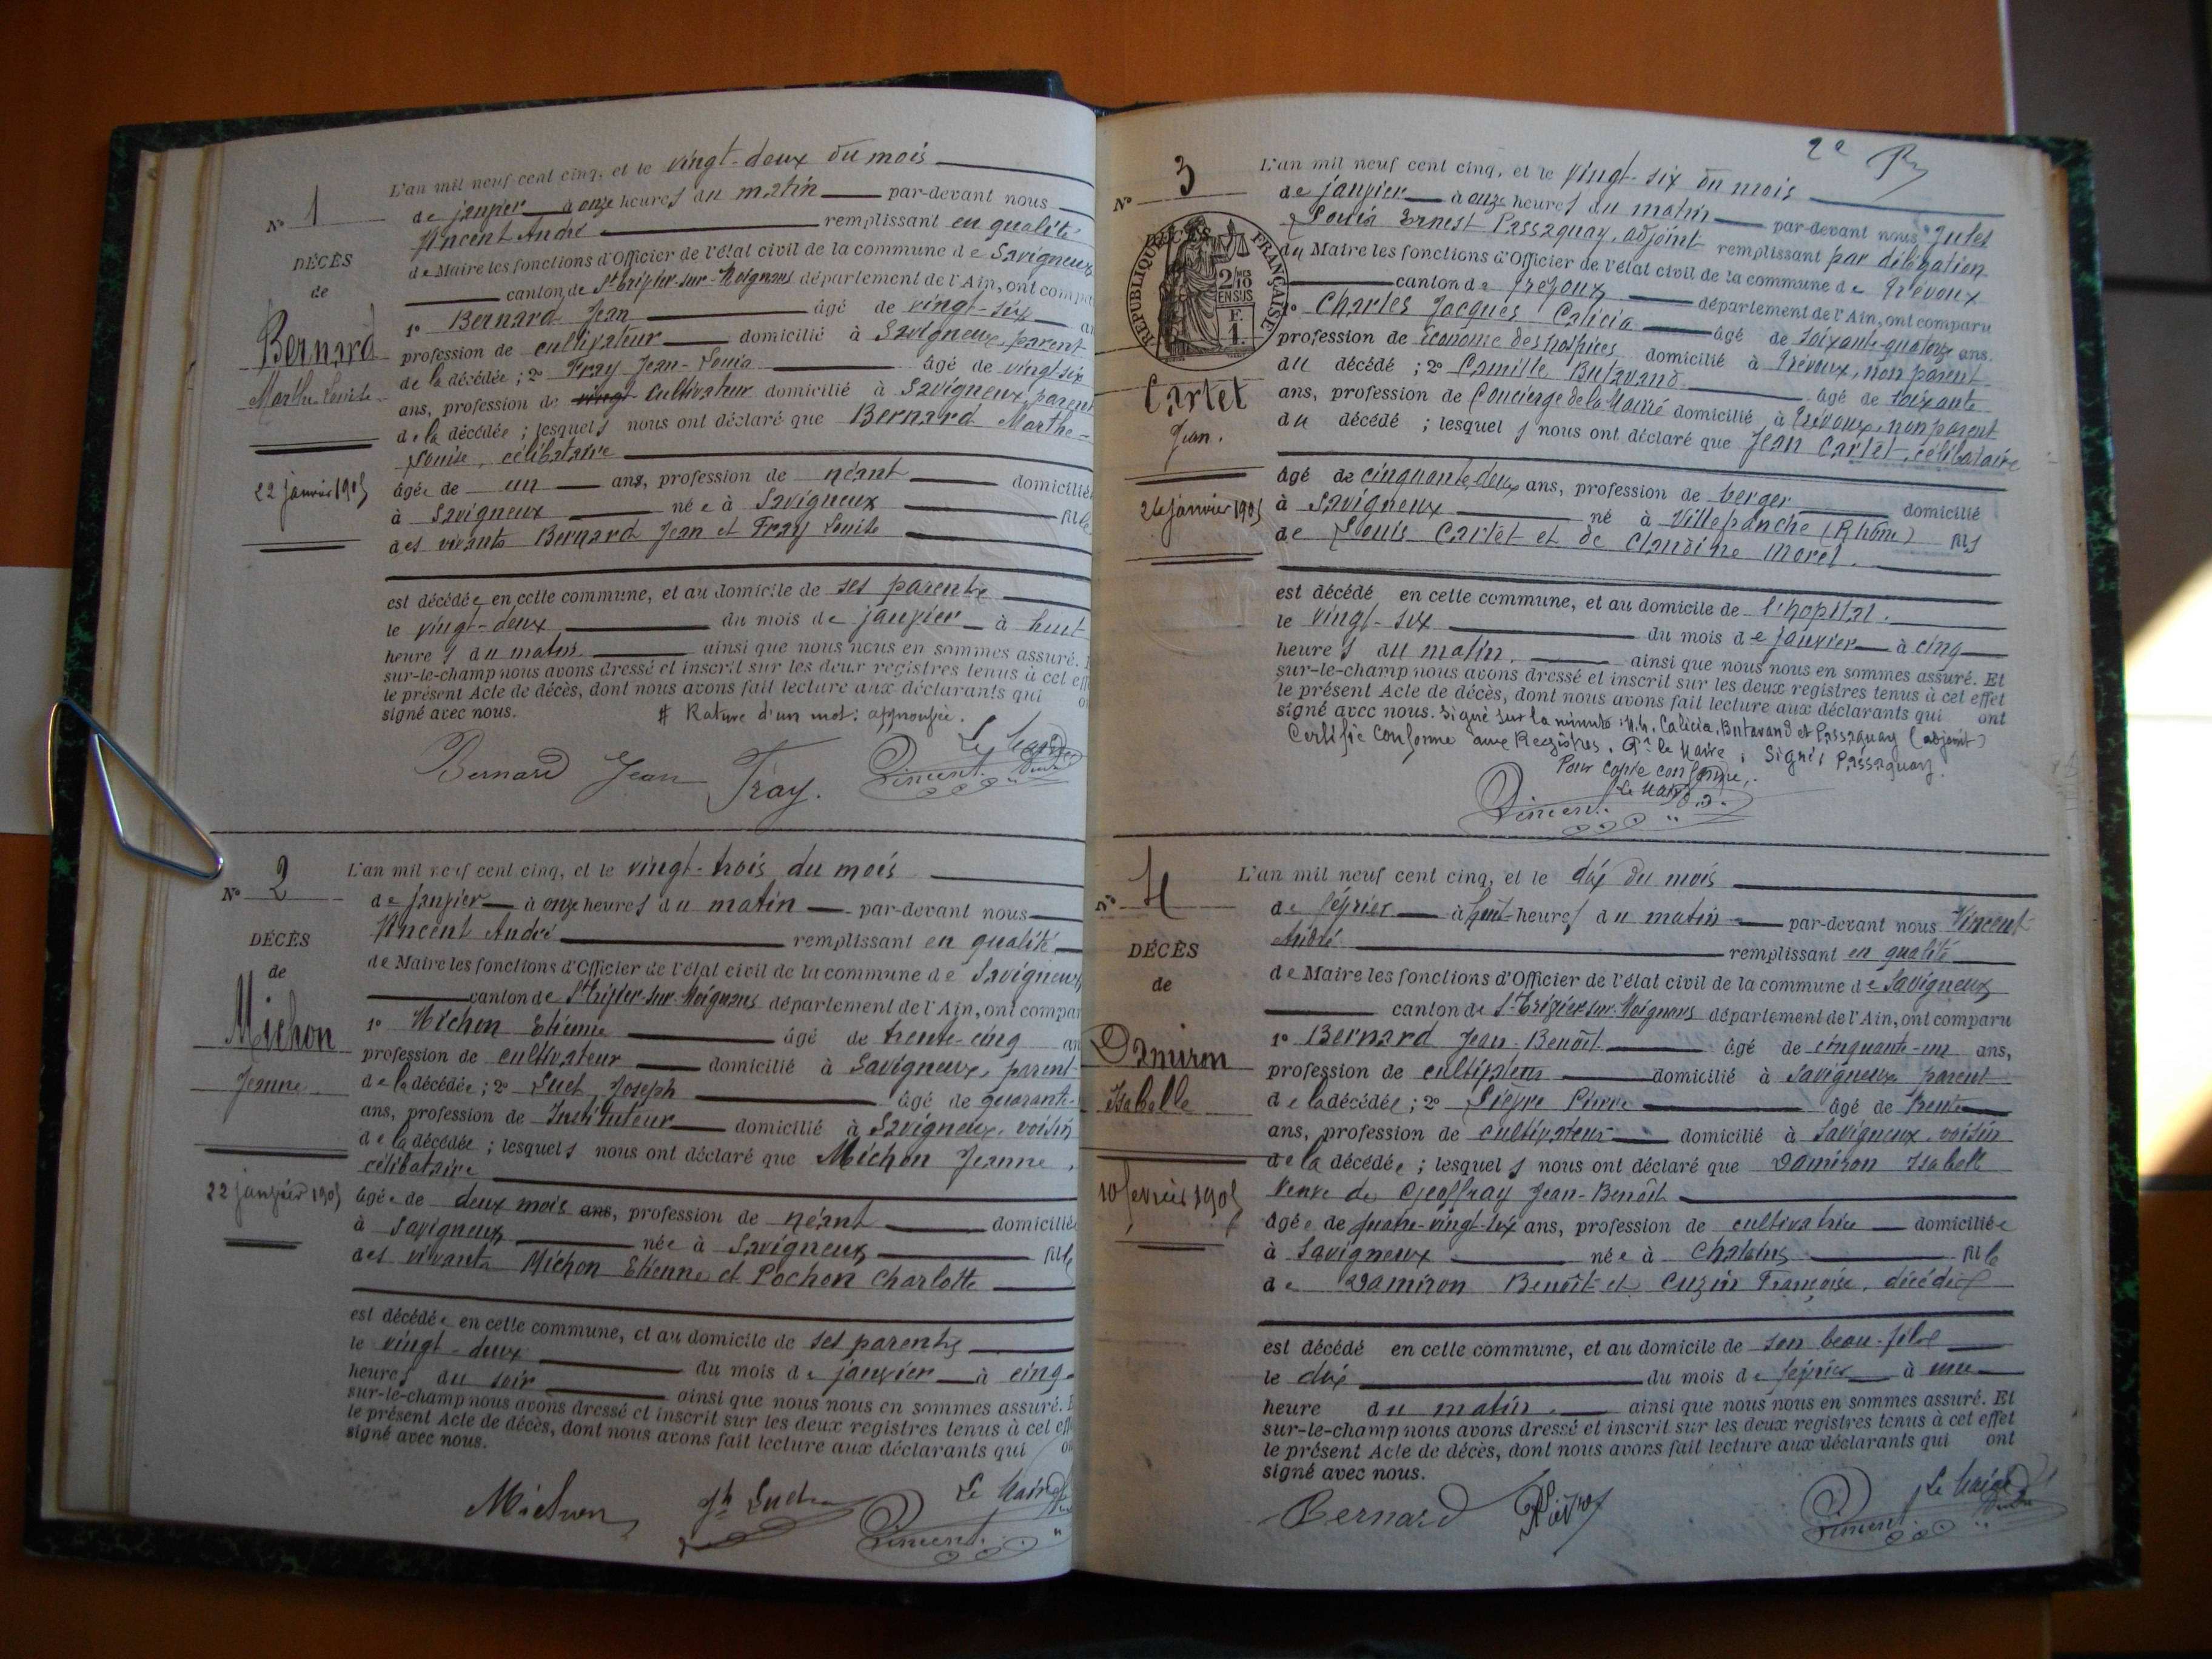 L'an mil neuf cent cinq, et le vingt-deux du mois
N° 1
de janvier à onze heures du matin par-devant nous
Vincent André remplissant en qualité
DÉCÈS
de Maire les fonctions d'Officier de l'état civil de la commune de Savigneux
de
canton de St Trivier-sur-Moignans département de l'Ain, ont compa
1° Bernard Jean âgé de vingt-six an
Bernard
profession de cultivateur domicilié à Savigneux, parent
Marthe-Louise
de la décédée ; 2° Fray Jean-Louis âgé de vingt-six
ans, profession de vingt cultivateur domicilié à Savigneux, parent
de la décédée ; lesquels nous ont déclaré que Bernard Marthe-
Louise, célibataire
22 janvier 1905
âgée de un ans, profession de néant domicilié
à Savigneux née à Savigneux fille
des vivants Bernard Jean et Fray Louise
est décédée en cette commune, et au domicile de ses parents
le vingt-deux du mois de janvier à huit
heures du matin. ainsi que nous nous en sommes assuré. E
sur-le-champ nous avons dressé et inscrit sur les deux registres tenus à cet eff
le présent Acte de décès, dont nous avons fait lecture aux déclarants qui o
signé avec nous. # Rature d'un mot : approuvée.
Le Maire
Bernard Jean Fray. Vincent André
L'an mil neuf cent cinq, et le vingt-trois du mois
N° 2
de janvier à onze heures du matin par-devant nous
Vincent André remplissant en qualité
DÉCÈS
de Maire les fonctions d'Officier de l'état civil de la commune de Savigneux
de
canton de St Trivier-sur-Moignans département de l'Ain, ont compar
Michon
1° Michon Etienne âgé de trente-cinq an
profession de cultivateur domicilié à Savigneux, parent
Jeanne
de la décédée ; 2° Luct Joseph âgé de quarante-
ans, profession de Instituteur domicilié à Savigneux, voisin
de la décédée ; lesquels nous ont déclaré que Michon Jeanne,
célibataire
22 janvier 1905
âgée de deux mois ans, profession de néant domiciliée
à Savigneux née à Savigneux fille
des vivants Michon Etienne et Pochon Charlotte
est décédée en cette commune, et au domicile de ses parents
le vingt-deux du mois de janvier à cinq
heures du soir ainsi que nous nous en sommes assuré. E
sur-le-champ nous avons dressé et inscrit sur les deux registres tenus à cet eff
le présent Acte de décès, dont nous avons fait lecture aux déclarants qui on
signé avec nous.
Le Maire
Michon Jh Luct Vincent
2e
N° 3
L'an mil neuf cent cinq, et le vingt-six du mois
de janvier à onze heures du matin par-devant nous Jules
Louis Ernest Passaquay, adjoint remplissant par délégation
du Maire les fonctions d'Officier de l'état civil de la commune de Trévoux
canton de Trévoux département de l'Ain, ont comparu
RÉPUBLIQUE FRANÇAISE
2/10 EN SUS
F. 1.
1° Charles Jacques Calicia âgé de soixante-quatorze ans,
profession de économe des hospices domicilié à Trévoux, non parent
du décédé ; 2° Camille Butavand âgé de soixante
Cartet
ans, profession de Concierge de la Mairie domicilié à Trévoux, non parent
Jean.
du décédé ; lesquels nous ont déclaré que Jean Cartet, célibataire
âgé de cinquante-deux ans, profession de berger domicilié
26 janvier 1905
à Savigneux né à Villefranche (Rhône) fils
de Louis Cartet et de Claudine Morel.
est décédé en cette commune, et au domicile de l'hôpital.
le vingt-six du mois de janvier à cinq
heures du matin. ainsi que nous nous en sommes assuré. Et
sur-le-champ nous avons dressé et inscrit sur les deux registres tenus à cet effet
le présent Acte de décès, dont nous avons fait lecture aux déclarants qui ont
signé avec nous. Signé sur la minute : M.M. Calicia, Butavand et Passaquay (adjoint)
Certifié conforme aux Registres. Pr le Maire, Signé : Passaquay.
Pour copie conforme,
Le Maire
Vincent
N° 4
L'an mil neuf cent cinq, et le dix du mois
de février à huit heures du matin par-devant nous Vincent
André remplissant en qualité
DÉCÈS
de Maire les fonctions d'Officier de l'état civil de la commune de Savigneux
de
canton de St Trivier-sur-Moignans département de l'Ain, ont comparu
Damiron
1° Bernard Jean-Benoît âgé de cinquante-un ans,
profession de cultivateur domicilié à Savigneux parent
Isabelle
de la décédée ; 2° Lièvre Pierre âgé de trente
ans, profession de cultivateur domicilié à Savigneux voisin
de la décédée ; lesquels nous ont déclaré que Damiron Isabelle
10 février 1905
veuve de Geoffray Jean-Benoît
âgée de quatre-vingt-six ans, profession de cultivatrice domiciliée
à Savigneux née à Chaleins fille
de Damiron Benoît et Cuzin Françoise, décédés
est décédé en cette commune, et au domicile de son beau-fils
le dix du mois de février à une
heure du matin. ainsi que nous nous en sommes assuré. Et
sur-le-champ nous avons dressé et inscrit sur les deux registres tenus à cet effet
le présent Acte de décès, dont nous avons fait lecture aux déclarants qui ont
signé avec nous.
Le Maire
Bernard Lièvre Vincent André